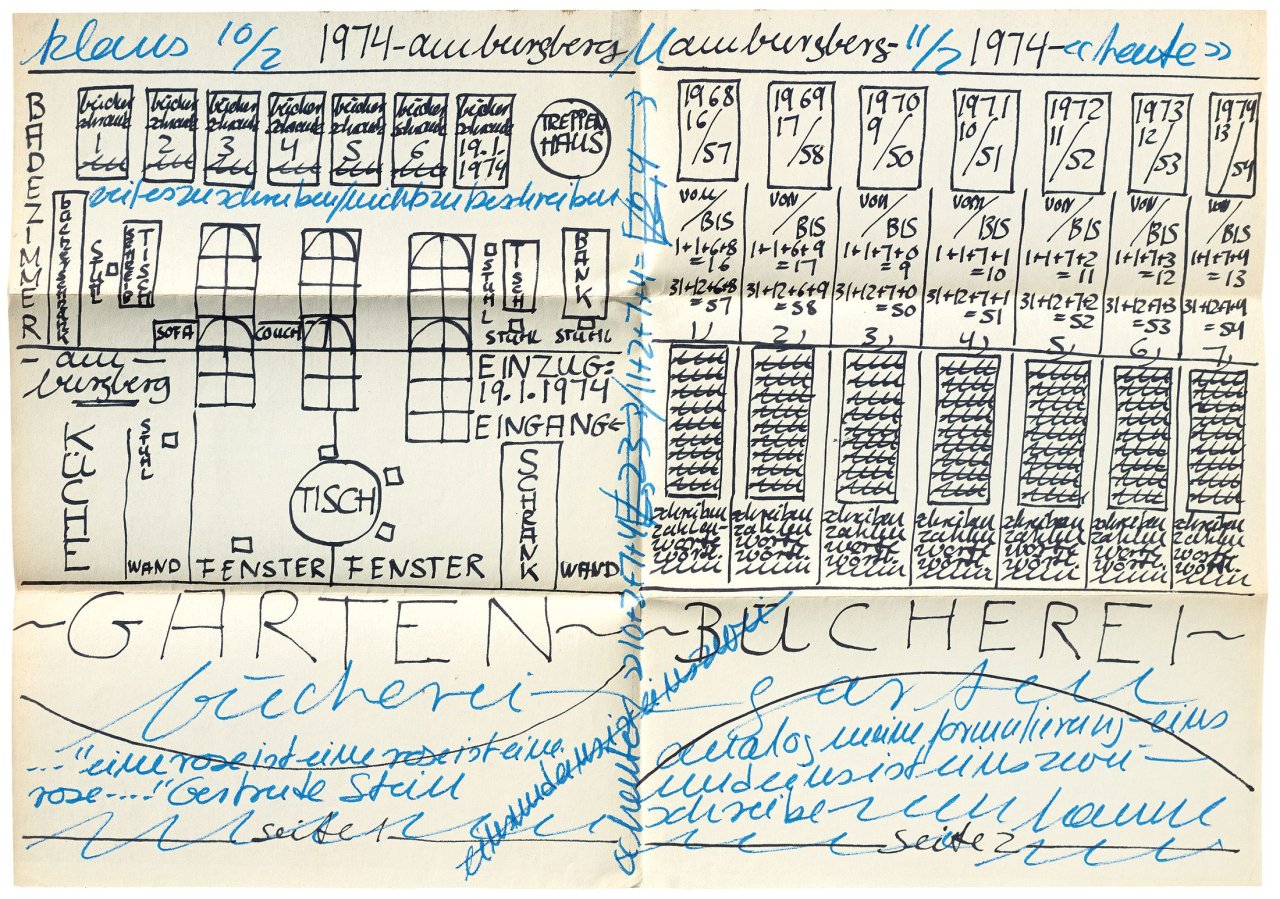 klaus 10/2 1974-am burgberg
BADEZIMMER
bücherschrank 1
bücherschrank 2
bücherschrank 3
bücherschrank 4
bücherschrank 5
bücherschrank 6
bücherschrank 19.1.1974
TREPPENHAUS
weiteszuschreiben/nichtszubeschreiben
STUHL
TISCH
STUHL
TISCH
BANK
STUHL
STUHL
SOFA
COUCH
-am-
burgberg
EINZUG:
19.1.1974
EINGANG
KÜCHE
STUHL
TISCH
SCHRANK
WAND
FENSTER
FENSTER
WAND
~GARTEN~
bücherei-
..."eine rose ist eine rose ist eine
rose---..." Gertrude Stein
seite 1
am burgberg- 11/2 1974-«heute»
1968 16/57
1969 17/58
1970 9/50
1971 10/51
1972 11/52
1973 12/53
1974 13/54
von/BIS
von/BIS
von/BIS
von/BIS
von/BIS
von/BIS
von/BIS
1+1+6+8 =16
1+1+6+9 =17
1+1+7+0 =9
1+1+7+1 =10
1+1+7+2 =11
1+1+7+3 =12
1+1+7+4 =13
31+12+6+8 =57
31+12+6+9 =58
31+12+7+0 =50
31+12+7+1 =51
31+12+7+2 =52
31+12+7+3 =53
31+12+7+4 =54
1, 2, 3, 4, 5, 6, 7,
schreiben zahlen- worte-
schreiben zahlen worte
schreiben zahlen worte
schreiben zahlen worte
schreiben zahlen worte
schreiben zahlen worte
schreiben zahlen worte
~BÜCHEREI~
-garten
analog meine formulierung-eins
und eins ist einszwei-
schreibe hanne
seite 2
«heute» 10+2+7+4=23 / 11+2+7+4=
einsundeinsisteinszwei